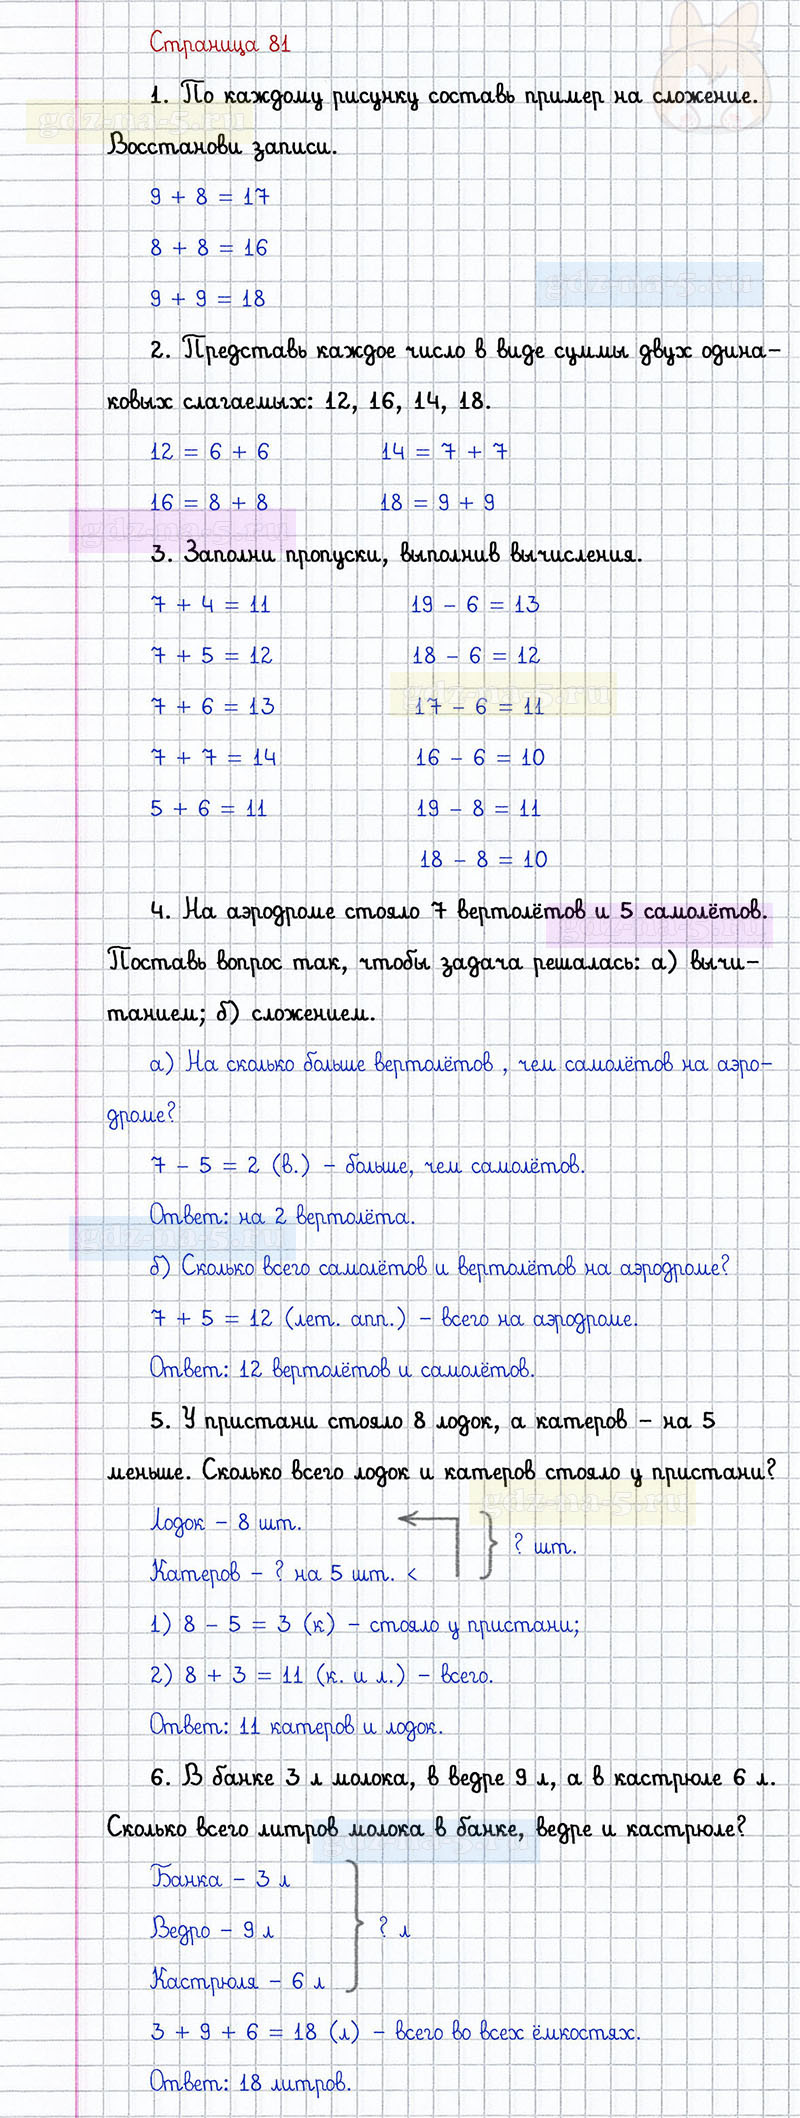 Страница 81
1. По каждому рисунку составь пример на сложение.
gdz-na-5.ru
Восстанови записи.
9 + 8 = 17
8 + 8 = 16
gdz-na-5.ru
9 + 9 = 18
2. Представь каждое число в виде суммы двух одина-
ковых слагаемых: 12, 16, 14, 18.
12 = 6 + 6 14 = 7 + 7
16 = 8 + 8 18 = 9 + 9
gdz-na-5.ru
3. Заполни пропуски, выполнив вычисления.
7 + 4 = 11 19 - 6 = 13
7 + 5 = 12 18 - 6 = 12
gdz-na-5.ru
7 + 6 = 13 17 - 6 = 11
7 + 7 = 14 16 - 6 = 10
5 + 6 = 11 19 - 8 = 11
18 - 8 = 10
4. На аэродроме стояло 7 вертолётов и 5 самолётов.
gdz-na-5.ru
Поставь вопрос так, чтобы задача решалась: а) вычи-
танием; б) сложением.
а) На сколько больше вертолётов , чем самолётов на аэро-
дроме?
7 - 5 = 2 (в.) - больше, чем самолётов.
Ответ: на 2 вертолёта.
gdz-na-5.ru
б) Сколько всего самолётов и вертолётов на аэродроме?
7 + 5 = 12 (лет. апп.) - всего на аэродроме.
Ответ: 12 вертолётов и самолётов.
5. У пристани стояло 8 лодок, а катеров - на 5
меньше. Сколько всего лодок и катеров стояло у пристани?
gdz-na-5.ru
Лодок - 8 шт.
? шт.
Катеров - ? на 5 шт. <
1) 8 - 5 = 3 (к) - стояло у пристани;
2) 8 + 3 = 11 (к. и л.) - всего.
Ответ: 11 катеров и лодок.
6. В банке 3 л молока, в ведре 9 л, а в кастрюле 6 л.
Сколько всего литров молока в банке, ведре и кастрюле?
gdz-na-5.ru
Банка - 3 л
Ведро - 9 л ? л
Кастрюля - 6 л
3 + 9 + 6 = 18 (л) - всего во всех ёмкостях.
Ответ: 18 литров.